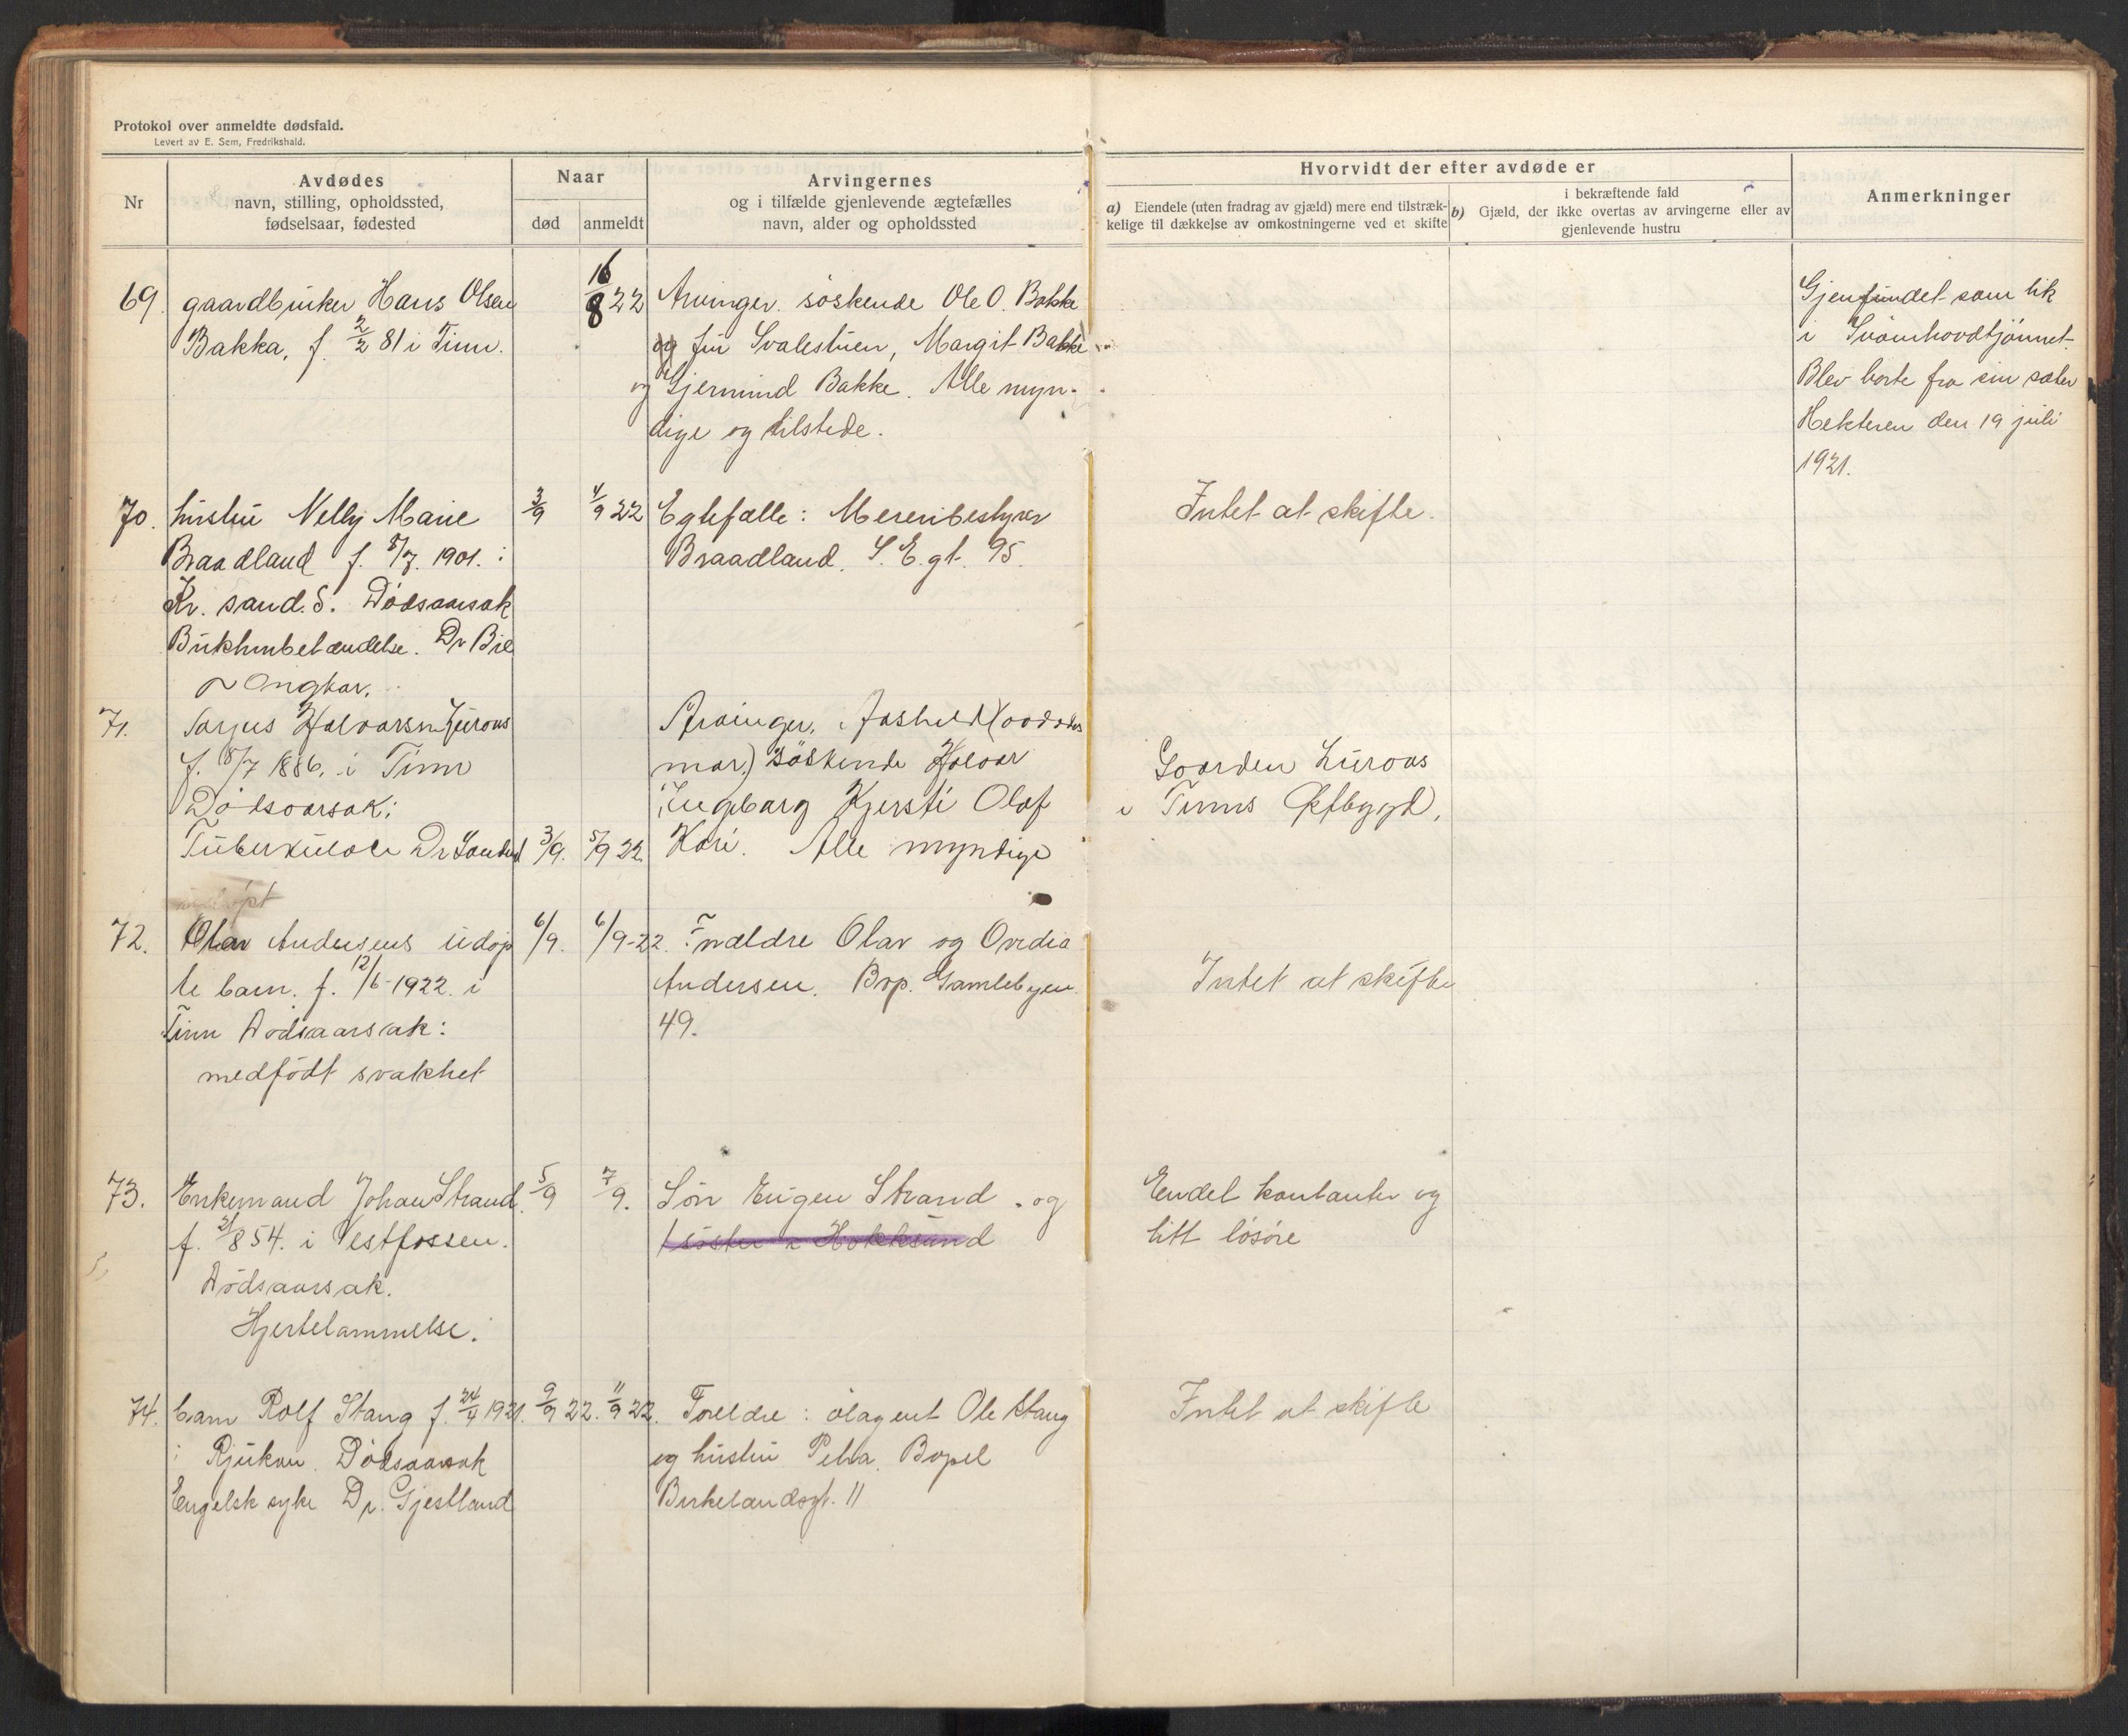 Protokol over anmeldte dødsfald.
Levert av E. Sem, Fredrikshald.
Nr
Avdødes
navn, stilling, opholdssted,
fødselsaar, fødested
Naar
død
anmeldt
Arvingernes
og i tilfælde gjenlevende ægtefælles
navn, alder og opholdssted
Hvorvidt der efter avdøde er
a) Eiendele (uten fradrag av gjæld) mere end tilstræk-
kelige til dækkelse av omkostningerne ved et skifte
i bekræftende fald
b) Gjæld, der ikke overtas av arvingerne eller av
gjenlevende hustru
Anmerkninger
69. gaardbruker Hans Olsen
Bakka, f. 2/2 81 i Tinn.
16/8 22
Arvinger. søskende Ole O. Bakke
og fru Svalestuen, Margit Bakke
og Gjermund Bakke. Alle myn-
dige og tilstede.
Gjenfundet som lik
i
Blev borte fra sin sæter
Hekteren den 19 juli
1921.
70. hustru Nelly Marie
Braadland f. 8/7. 1901. i
Kr. sand. S. Dødsaarsak
Bukhinbetændelse. Dr
3/9
4/9 22
Egtefælle: Meieribestyrer
Braadland. S. E. gt. 95.
Intet at skifte.
71. Tarjus Halvorsen Luraas
f. 8/7 1886. i Tinn
Dødsaarsak:
Tuberkulose Dr
3/9.
5/9 22
Arvinger, Aashild
mor) Søskende Halvor
Ingeborg Kjersti Olaf
Kari. Alle myndige
Gaarden Luraas
i Tinns Østbygd.
72. Olav Andersens udøp
te barn. f. 12/6-1922. i
Tinn Dødsaarsak:
medfødt svakhet
6/9.
6/9-22.
Forældre Olav og Ovedia
Andersen. Bop. Gamlebyen
49.
Intet at skifte
73. Enkemand Johan Strand.
f. 21/8 54. i Vestfossen.
Dødsaarsak.
Hjertelammelse.
5/9
7/9.
Søn Eugen Strand. og
søster i Hokksund
Endel kontanter og
litt løsøre
74. barn Rolf Stang f. 24/4 1921.
i Rjukan. Dødsaarsak
Engelsk syke Dr. Gjestland
9/9 22.
11/9 22.
Foreldre: ølagent Ole Stang
og hustru Petra. Bopel
Birkelandsgt. 11
Intet at skifte